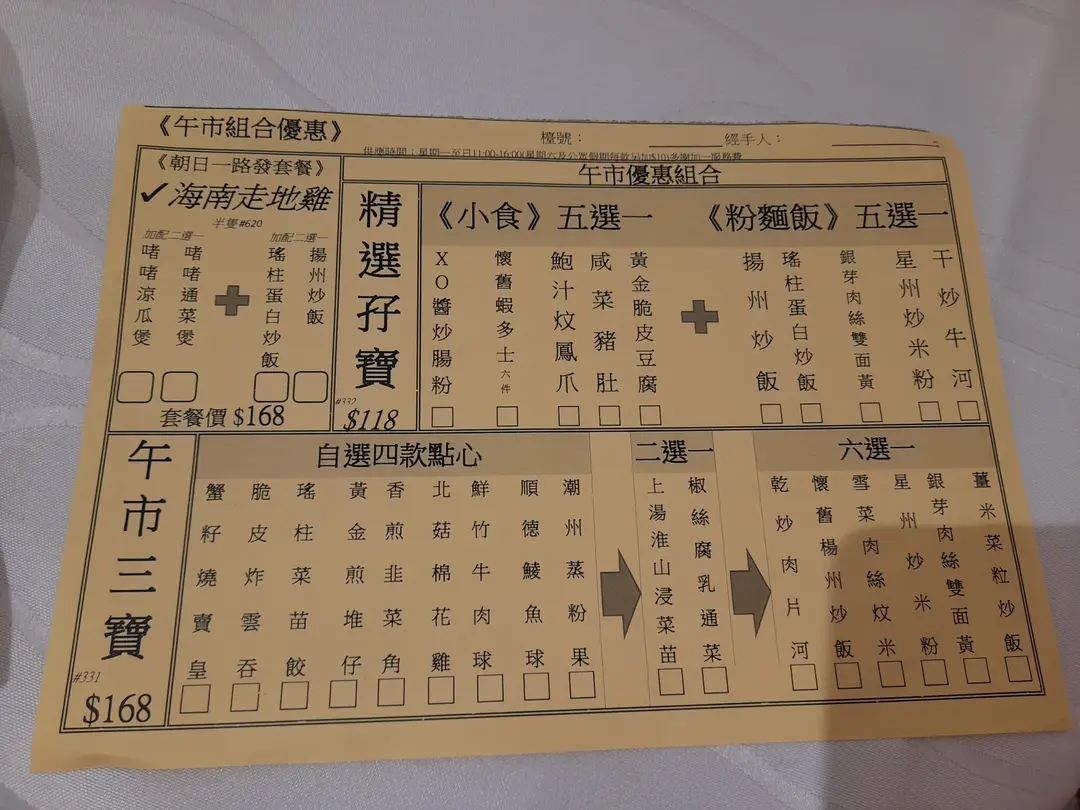 《午市組合優惠》
檯號：
經手人：
供應時間：星期一至日11:00-16:00(星期六及公眾假期每款另加$10)多謝加一服務費
《朝日一路發套餐》
✓海南走地雞
半隻#620
加配二選一
加配二選一
啫啫涼瓜煲
啫啫通菜煲
瑤柱蛋白炒飯
揚州炒飯
套餐價 $168
午市優惠組合
精選孖寶
#332
$118
《小食》五選一
XO醬炒腸粉
懷舊蝦多士六件
鮑汁炆鳳爪
咸菜豬肚
黃金脆皮豆腐
《粉麵飯》五選一
揚州炒飯
瑤柱蛋白炒飯
銀芽肉絲雙面黃
星州炒米粉
干炒牛河
午市三寶
#331
$168
自選四款點心
蟹籽燒賣皇
脆皮炸雲吞
瑤柱菜苗餃
黃金煎堆仔
香煎韭菜角
北菇棉花雞
鮮竹牛肉球
順德鯪魚球
潮州蒸粉果
二選一
上湯淮山浸菜苗
椒絲腐乳通菜
六選一
乾炒肉片河
懷舊楊州炒飯
雪菜肉絲炆米
星州炒米粉
銀芽肉絲雙面黃
薑米菜粒炒飯